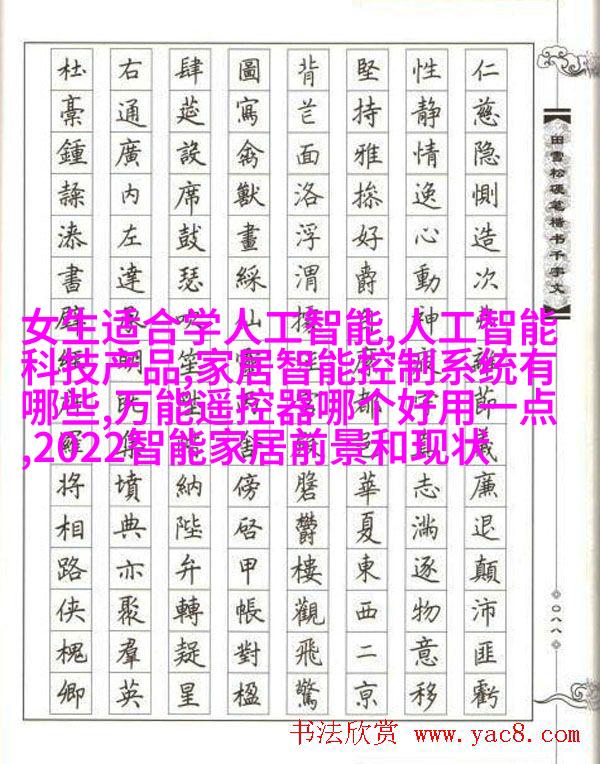 仁慈隐惻造次離節義廉退顛沛匪虧
性静情逸心動神疲真志滿逐物意移
堅持雅捴好爵縻都邑華夏東西二亰
背芒面洛浮渭據宮鬱樓觀飛驚
圖寫禽獸畫綵仙靈舍傍啓甲帳對楹
肆筵設席鼓瑟吹笙納陛弁轉疑星
右通廣内左達承明既集墳典亦聚羣英
杜稾鍾隸漆書壁經羅將相路侠槐卿
田雪松硬笔楷书千字文
〇八八
女生适合学人工智能,人工智能
科技产品,家居智能控制系统有
哪些,万能遥控器哪个好用一点
,2022智能家居前景和现状
书法欣赏 www.yac8.com